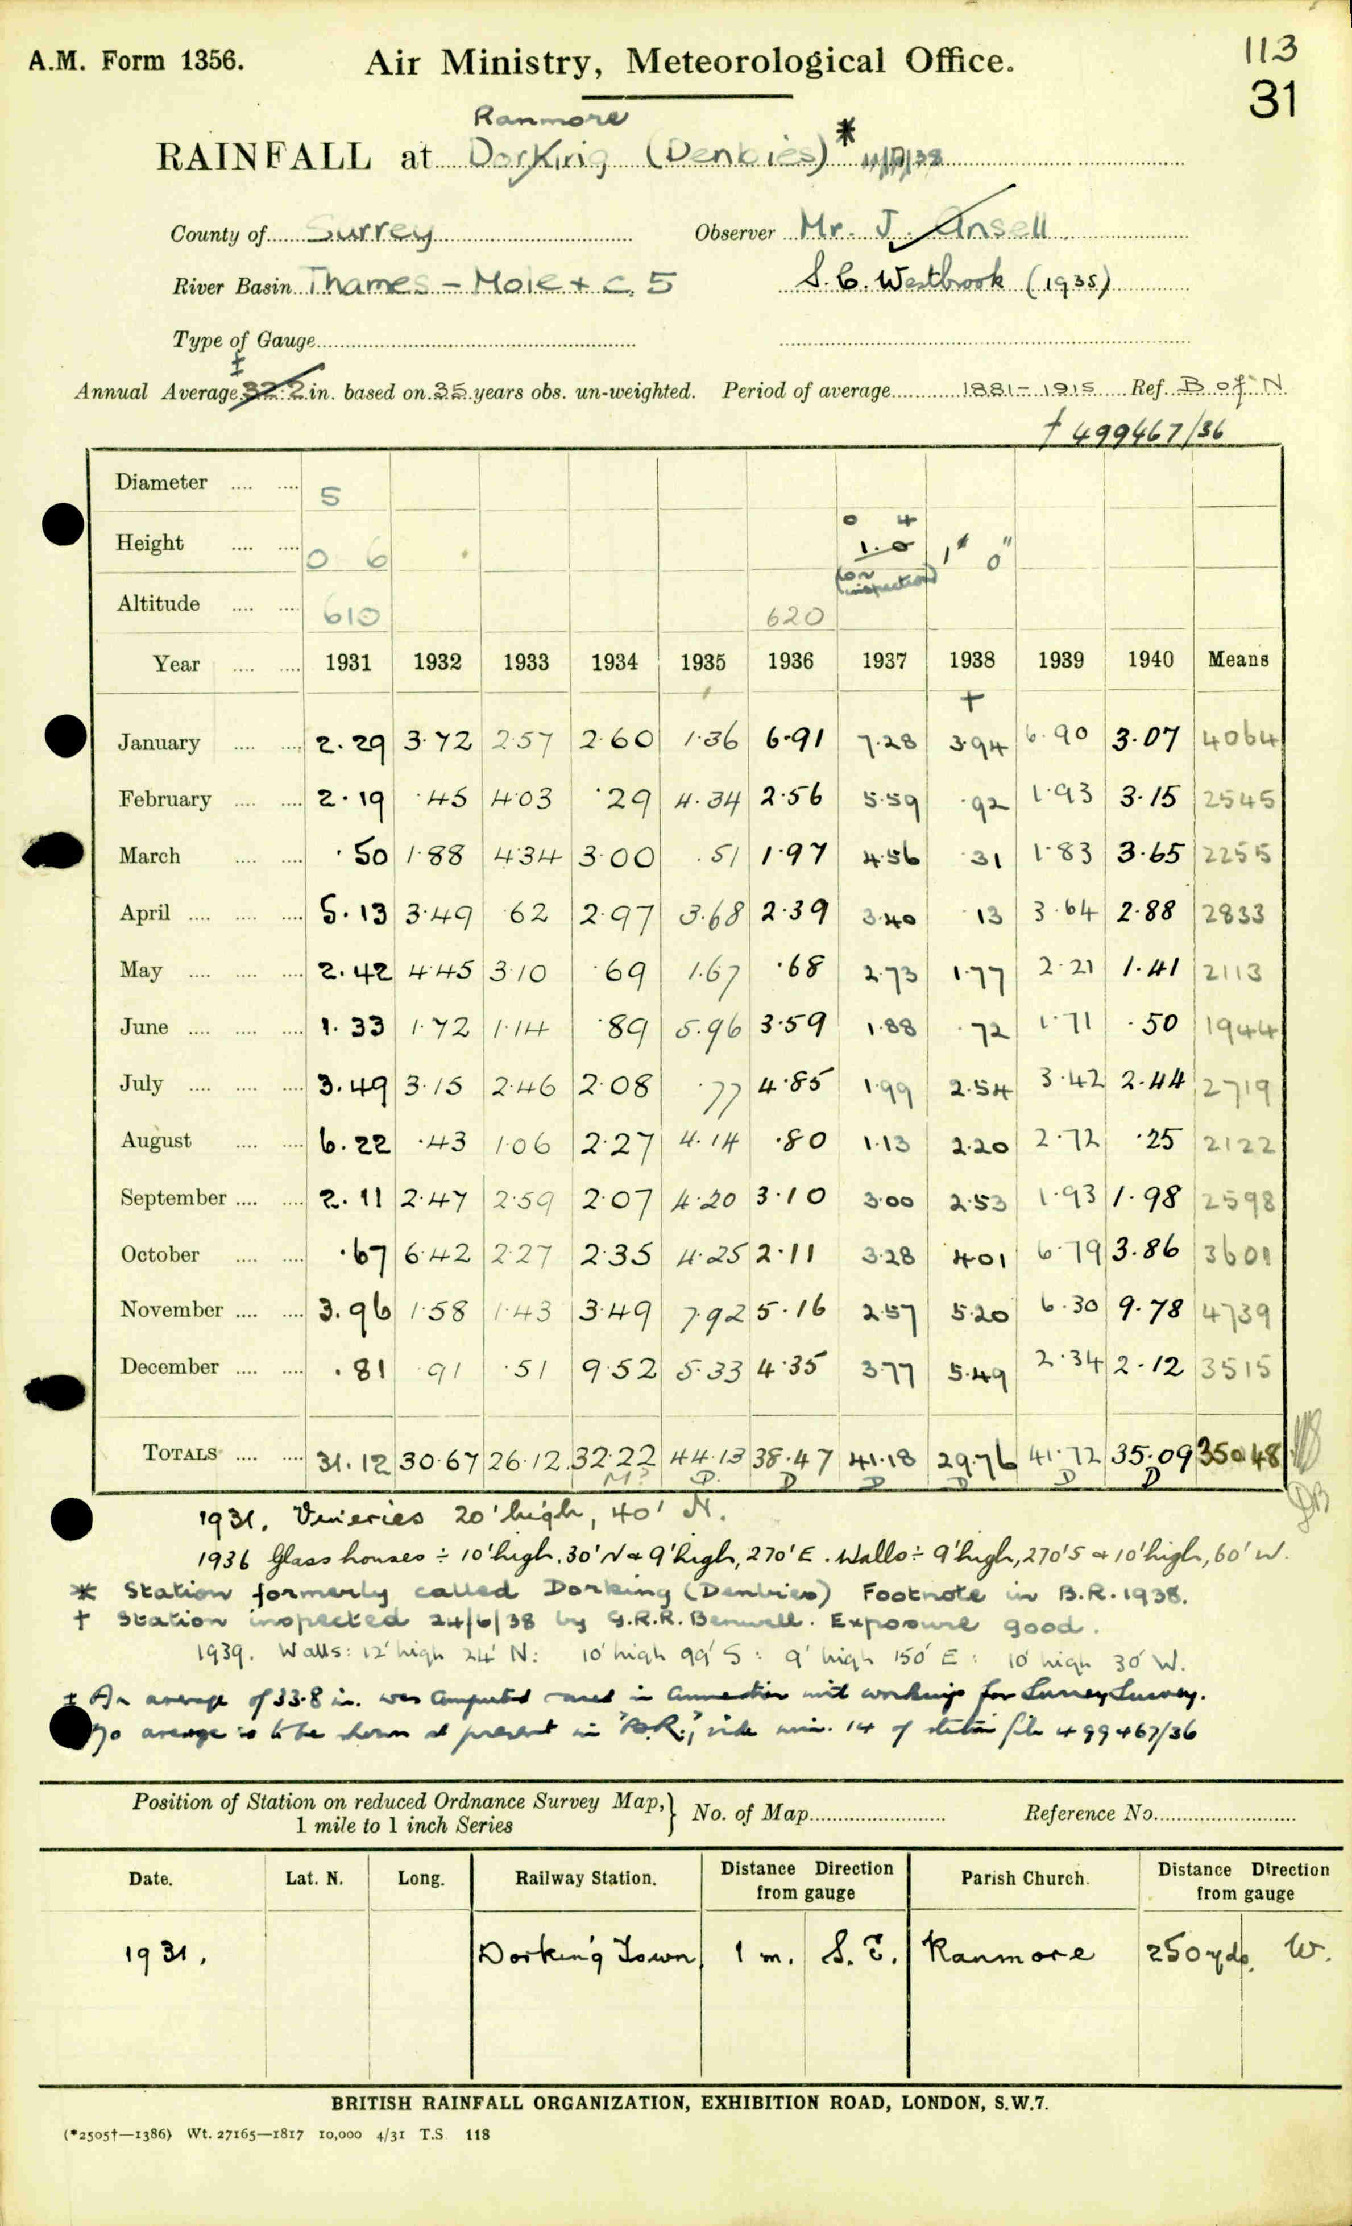 113
A.M. Form 1356. Air Ministry, Meteorological Office. 31
Ranmore
RAINFALL at Dorking (Denbies) *
County of Surrey Observer Mr. J. Ansell
River Basin Thames – Mole + C. 5 S. C. Westbrook (1935)
Type of Gauge
‡
Annual Average 32.2 in. based on 35 years obs. un-weighted. Period of average 1881–1915 Ref. B of N
† 499467/36
Diameter 5
Height 0 6 0 4 1.0 (on inspection) 1' 0"
Altitude 610 620
Year 1931 1932 1933 1934 1935 1936 1937 1938 1939 1940 Means
†
January 2.29 3.72 2.57 2.60 1.36 6.91 7.28 3.94 6.90 3.07 4064
February 2.19 .45 4.03 .29 4.34 2.56 5.59 .92 1.93 3.15 2545
March .50 1.88 4.34 3.00 .51 1.97 4.56 .31 1.83 3.65 2255
April 5.13 3.49 .62 2.97 3.68 2.39 3.40 .13 3.64 2.88 2833
May 2.42 4.45 3.10 .69 1.67 .68 2.73 1.77 2.21 1.41 2113
June 1.33 1.72 1.14 .89 5.96 3.59 1.88 .72 1.71 .50 1944
July 3.49 3.15 2.46 2.08 .77 4.85 1.99 2.54 3.42 2.44 2719
August 6.22 .43 1.06 2.27 4.14 .80 1.13 2.20 2.72 .25 2122
September 2.11 2.47 2.59 2.07 4.20 3.10 3.00 2.53 1.93 1.98 2598
October .67 6.42 2.27 2.35 4.25 2.11 3.28 4.01 6.79 3.86 3601
November 3.96 1.58 1.43 3.49 7.92 5.16 2.57 5.20 6.30 9.78 4739
December .81 .91 .51 9.52 5.33 4.35 3.77 5.49 2.34 2.12 3515
TOTALS 31.12 30.67 26.12 32.22 44.13 38.47 41.18 29.76 41.72 35.09 35048
M? D D D D D D
1931. Vineries 20' high, 40' N.
1936 Glass houses ÷ 10' high, 30' N & 9' high, 270' E. Walls ÷ 9' high, 270' S & 10' high, 60' W.
* Station formerly called Dorking (Denbies) Footnote in B.R. 1938.
† Station inspected 24/6/38 by G.R.R. Benwell. Exposure good.
1939. Walls: 12' high 24' N: 10' high 99' S: 9' high 150' E: 10' high 30' W.
‡ An average of 33.8 in. was computed and used in connection with workings for Surrey Survey.
No average is to be shown at present in "B.R.", vide min. 14 of station file 499467/36
Position of Station on reduced Ordnance Survey Map, 1 mile to 1 inch Series } No. of Map Reference No.
Date. Lat. N. Long. Railway Station. Distance Direction from gauge Parish Church. Distance Direction from gauge
1931. Dorking Town 1 m. S. E. Ranmore 250 yds. W.
BRITISH RAINFALL ORGANIZATION, EXHIBITION ROAD, LONDON, S.W.7.
(*2505†—1386) Wt. 27165—1817 10,000 4/31 T.S 118